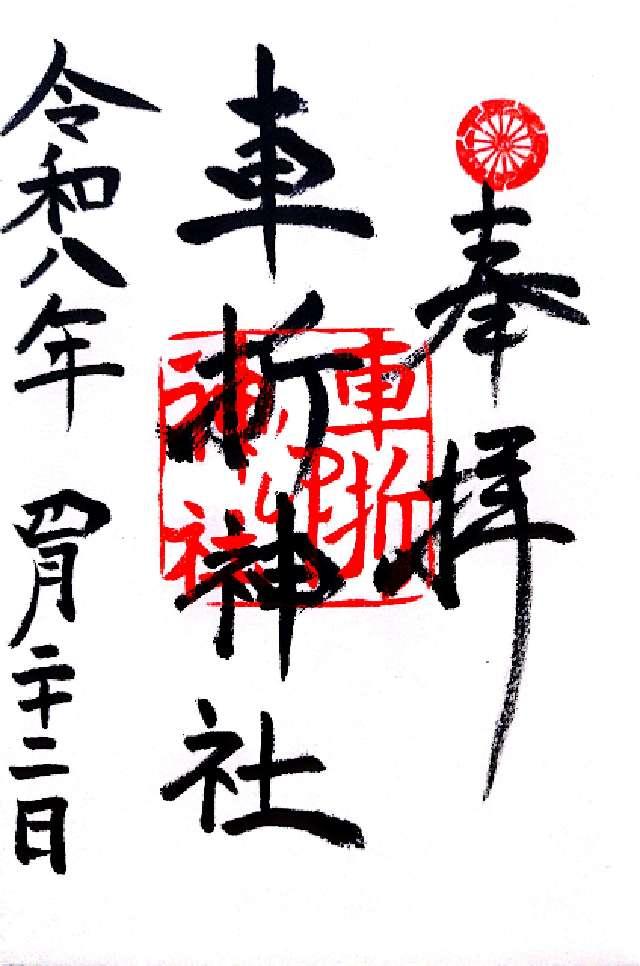 奉拝
車折神社
車折神社之印
令和八年 四月二十二日